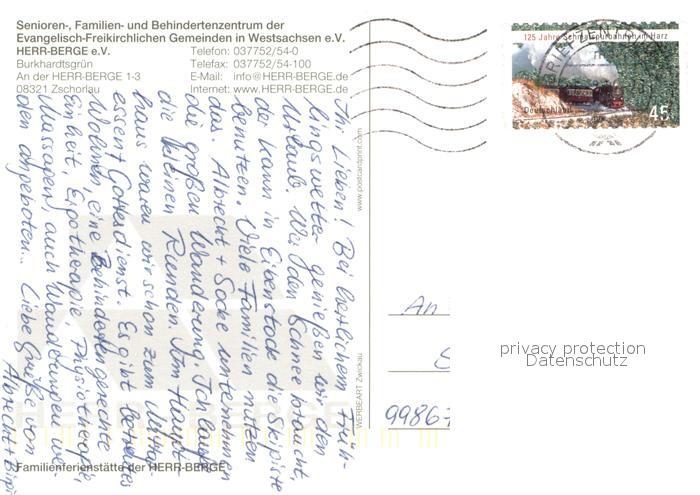 Senioren-, Familien- und Behindertenzentrum der
Evangelisch-Freikirchlichen Gemeinden in Westsachsen e.V.
HERR-BERGE e.V. Telefon: 037752/54-0
Burkhardtsgrün Telefax: 037752/54-100
An der HERR-BERGE 1-3 E-Mail: info@HERR-BERGE.de
08321 Zschorlau Internet: www.HERR-BERGE.de
Ihr Lieben! Bei herrlichem Früh-
lingswetter genießen wir den
Urlaub. Wer den Schnee braucht,
der kann in Eibenstock die Skipiste
benutzen. Viele Familien nutzen
das. Albrecht + Socke unternehmen
die großen Wanderung. Ich laufe
die kleinen Runden. Im
haus waren wir schon zum
essen + Gottesdienst. Es gibt
Wohnen, eine Behindertengerechte
Einheit, Ergotherapie, Physiotherapie,
Massagen, auch Wanderungen wer-
den angeboten... Liebe Grüße von
Albrecht +
www.postcardprint.com
WERBEART Zwickau
125 Jahre Schmalspurbahnen im Harz
Deutschland
45
An
99867
privacy protection
Datenschutz
HERR-BERGE
Familienferienstätte der HERR-BERGE